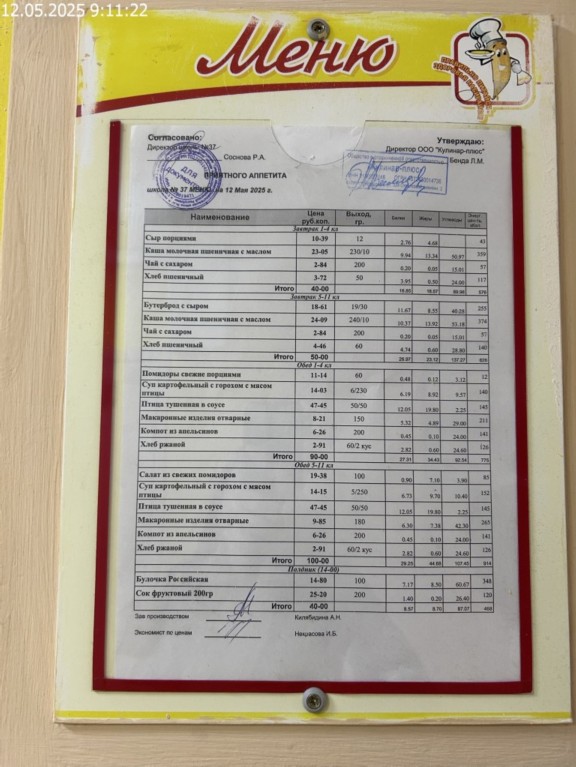 12.05.2025 9:11:22
Меню
Согласовано: Утверждаю:
Директор школы №37 Директор ООО "Кулинар-плюс"
Соснова Р.А. Бенда Л.М.
Для документов
ПРИЯТНОГО АППЕТИТА
школа № 37 МЕНЮ на 12 Мая 2025 г.
Наименование Цена руб.коп. Выход, гр. Белки Жиры Углеводы
Завтрак 1-4 кл
Сыр порциями 10-39 12 2.76 4.68 43
Каша молочная пшеничная с маслом 23-05 230/10 9.94 13.24 50.97 359
Чай с сахаром 2-84 200 0.20 0.05 15.01 57
Хлеб пшеничный 3-72 50 3.95 0.50 24.00 117
Итого 40-00
Завтрак 5-11 кл
Бутерброд с сыром 18-61 19/30 11.67 8.55 255
Каша молочная пшеничная с маслом 24-09 240/10 10.37 13.92 53.18 374
Чай с сахаром 2-84 200 0.20 0.05 15.01 57
Хлеб пшеничный 4-46 60 4.74 0.60 28.80 140
Итого 50-00
Обед 1-4 кл
Помидоры свежие порциями 11-14 60 0.48 0.12 3.12 12
Суп картофельный с горохом с мясом птицы 14-03 6/230 6.19 8.92 9.57 140
Птица тушенная в соусе 47-45 50/50 12.05 19.80 2.25 145
Макаронные изделия отварные 8-21 150 5.32 4.89 211
Компот из апельсинов 6-26 200 0.45 0.10 24.00 141
Хлеб ржаной 2-91 60/2 кус 2.82 0.60 24.60 126
Итого 90-00
Обед 5-11 кл
Салат из свежих помидоров 19-38 100 0.90 7.10 3.90 85
Суп картофельный с горохом с мясом птицы 14-15 5/250 6.73 9.70 10.40 152
Птица тушенная в соусе 47-45 50/50 12.05 19.80 2.25 145
Макаронные изделия отварные 9-85 180 6.36 7.38 42.30 265
Компот из апельсинов 6-26 200 0.45 0.10 24.00 141
Хлеб ржаной 2-91 60/2 кус 2.82 0.60 24.60 126
Итого 100-00
Полдник (14-00)
Булочка Российская 14-80 100 7.17 8.50 60.67 348
Сок фруктовый 200гр 25-20 200 1.40 0.20 26.40 120
Итого 40-00
Зав производством
Экономист по ценам